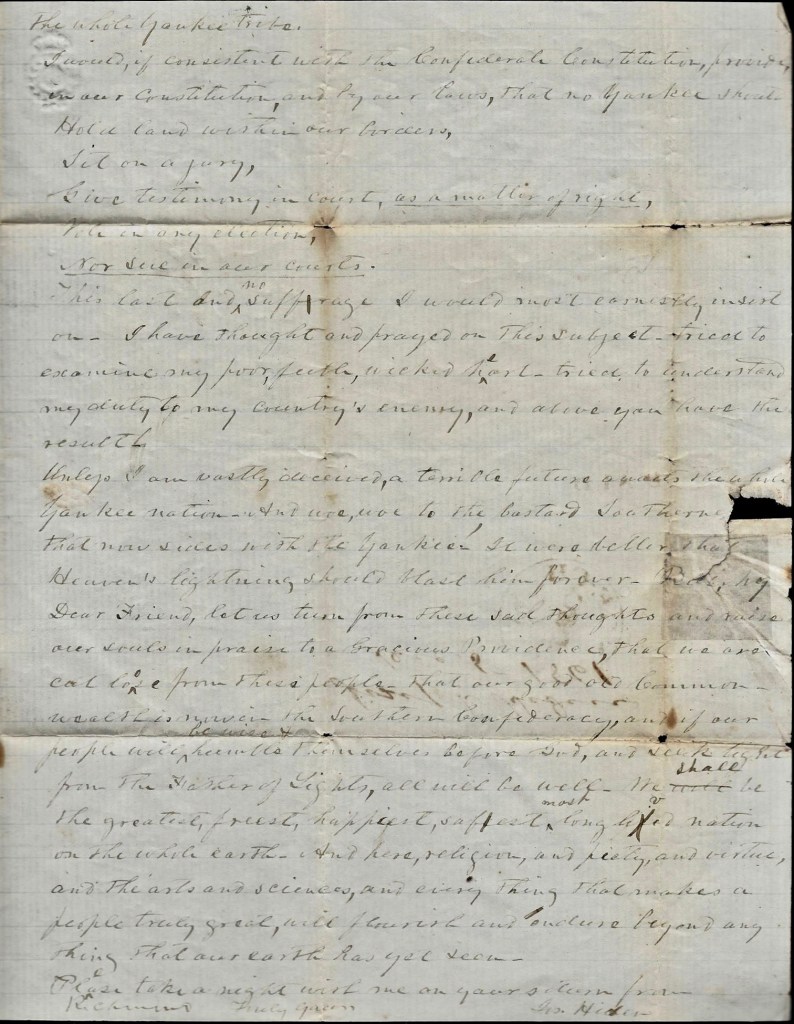 The whole Yankee tribe.
I would, if consistent with the Confederate Constitution, provide,
in our Constitution, and by our laws, that no Yankee shoul
Hold land within our borders,
Sit on a jury,
Give testimony in court, as a matter of right,
Vote in any election,
Nor sue in our courts.
This last and no suffrage I would most earnestly insist
on - I have thought and prayed on this subject - tried to
examine my poor, feeble, wicked heart - tried to understand
my duty to my country's enemy, and above you have the
result
Unless I am vastly deceived, a terrible future awaits the whole
Yankee nation - And woe, woe to the bastard Southerne
that now sides with the Yankee! It were better that
Heaven's lightning should blast him forever - my
Dear Friend, let us turn from these sad thoughts and raise
our souls in praise to a Gracious Providence, that we are
cut loose from these people - that our good old Common-
wealth is now in the Southern Confederacy, and if our
people will be wise & humble themselves before God, and seek light
from the Father of Lights, all will be well - We will shall be
the greatest, freest, happiest, safest, most long lived nation
on the whole earth - And here, religion, and piety, and virtue,
and the arts and sciences, and every thing that makes a
people truly great, will flourish and endure beyond any
thing that our earth has yet seen -
Please take a night with me on your return from
Richmond Truly yours Jos. Hiden